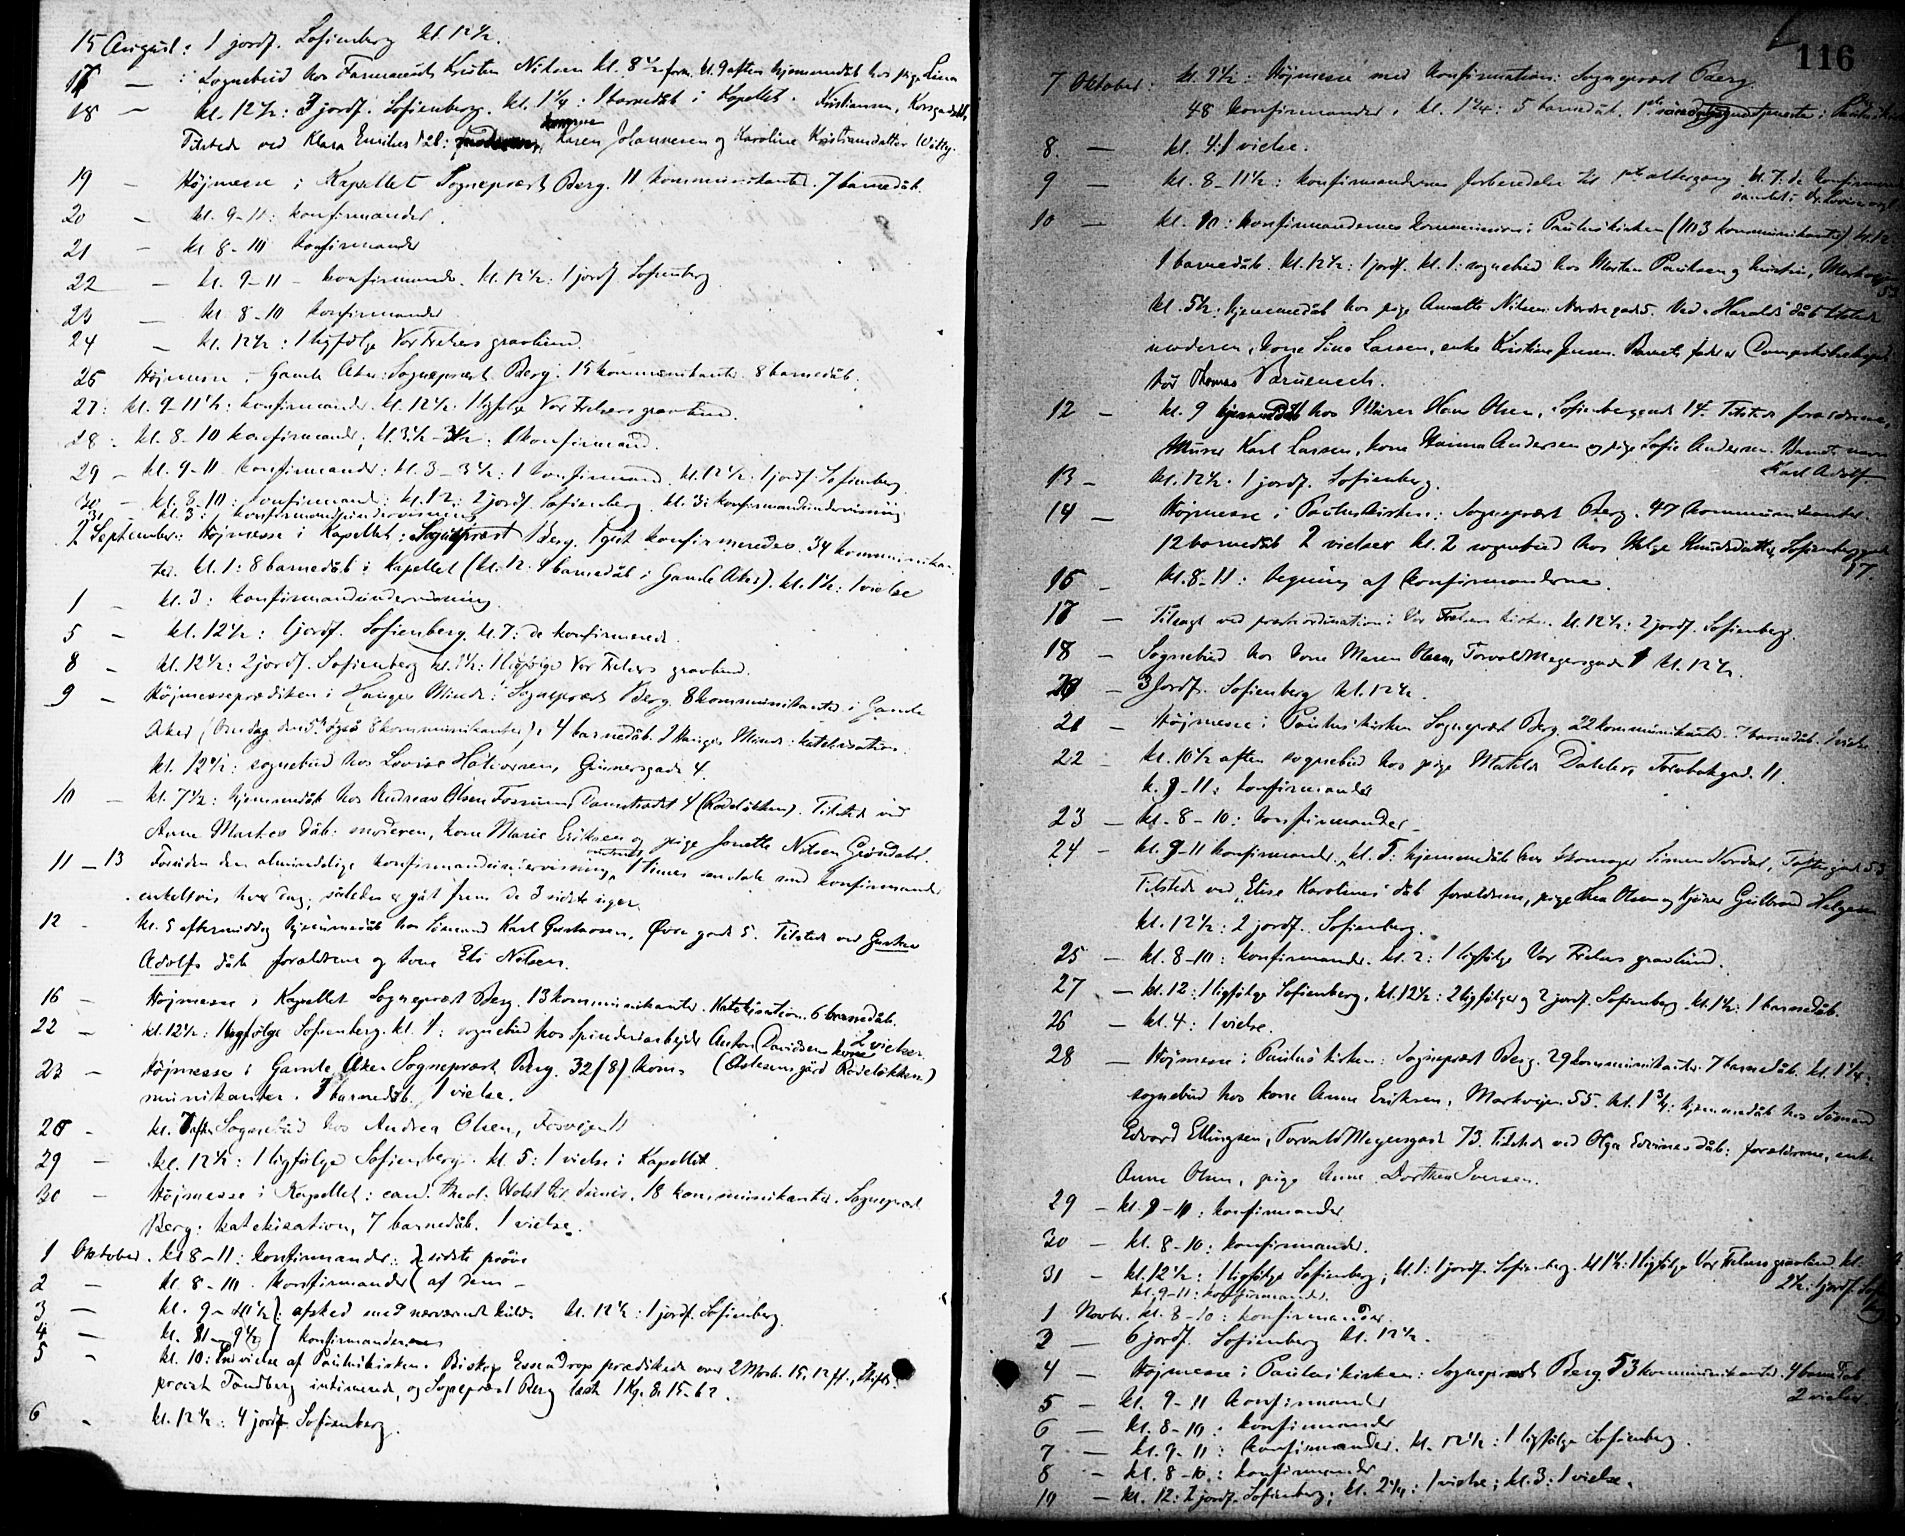 15 August: 1 jordf. Sofienberg kl. 12½.
17 — : Sognebud hos Farmand Kristen Nilsen kl. 8½ form. kl. 9 aften hjemmedåb hos pige Lina
18 — kl. 12½: 3 jordf. Sofienberg. kl. 1¼: 1 barnedåb i Kapellet. Kristiansen, Korsgaden
Tilstede ved Klara Emilies dåb: konerne Karen Johannesen og Karoline Kristiansdatter Willy.
19 — Højmesse i Kapellet Sognepræst Berg. 11 kommunikanter. 7 barnedåb.
20 — kl. 9-11: konfirmander.
21 — kl 8-10 konfirmander
22 — kl. 9-11 - konfirmander. kl. 12½: 1 jordf Sofienberg
23 — kl. 8-10 konfirmander
24 — kl. 12½: 1 ligfølge Vor Frelsers gravlund.
26 Højmesse i Gamle Aker: Sognepræst Berg: 15 kommunikanter. 8 barnedåb.
27: kl. 9-11½: konfirmander. kl. 12½. 1 ligfølge Vor Frelsers gravlund.
28: kl. 8-10 konfirmander; kl. 3½-3½: 1 konfirmand.
29 — kl. 9-11 konfirmander: kl. 3-3½: 1 konfirmand. kl. 12½: 1 jordf. Sofienberg.
30 — kl. 8-10: konfirmander: kl. 12: 2 jordf. Sofienberg. kl. 3: konfirmandundervisning
31 kl. 3: konfirmandundervisning
2 September: Højmesse i Kapellet: Sognepræst Berg. konfirmeredes. 34 kommunikan-
ter. kl. 1: 8 barnedåb i Kapellet (kl. 12: 4 barnedåb i Gamle Aker). kl. 1½: 1 vielse
1 — kl. 3: konfirmandundervisning
5 — kl. 12½: 1 jordf. Sofienberg. kl. 7: de konfirmerede.
8 — kl. 12½: 2 jordf. Sofienberg kl. 1½: 1 ligfølge Vor Frelsers gravlund.
9 — Højmesseprædiken i Hauges Minde: Sognepræst Berg. 8 kommunikanter i Gamle
Aker (onsdag den 5te også 8 kommunikanter). 4 barnedåb. I Hauges Minde: katekisation.
kl. 12½: sognebud hos Lovise Halvorsen, Grünersgade 4.
10 — kl. 7½: hjemmedåb hos Andreas Olsen Fossum, Damstrædet 4 (Rodeløkken). Tilstede ved
Anne Marthes dåb: moderen, kone Marie Eriksen og pige Janette Nilsen Grøndahl.
11-13 Foruden den almindelige konfirmandundervisning, 1 times samtale med konfirmander
enkeltvis hver dag; således er gåt frem de 3 sidste uger.
12 . kl. 5 eftermiddag hjemmedåb hos Sømand Karl Gustavsen, Øvre gade 5. Tilstede ved Gustav
Adolfs dåb forældrene og kone Eli Nilsen.
16 — Højmesse i Kapellet Sognepræst Berg. 13 kommunikanter. Katekisation. 6 barnedåb.
2 vielser.
22 — kl. 12½: 1 ligfølge Sofienberg. kl. 1: sognebud hos Spinderiarbejder Anton Davidsens kone
23 — Højmesse i Gamle Aker Sognepræst Berg. 32 (8) kom- (Østensengård Rodeløkken)
munikanter. 7 barnedåb. 1 vielse.
26 — kl. 7 aften Sognebud hos Andrea Olsen, Fosvejen 11
29 — kl. 12½: 1 ligfølge Sofienberg. kl. 5: 1 vielse i Kapellet.
30 — Højmesse i Kapellet: cand. theol. Holst til dimis. 18 kommunikanter. Sogneprest
Berg: katekisation, 7 barnedåb. 1 vielse.
1 Oktober. kl 8-11: konfirmander: } sidste prøve
2 — kl 8-10. konfirmander { af dem -
3 — kl. 9-10½ { afsked med nærværende kuld. kl. 12½: 1 jordf. Sofienberg.
4 — kl. 8-9½ { konfirmander
5 — kl. 10: Indvielse af Pauluskirken. Biskop Essendrop prædikede over 2 Mosb. 15, 17 ff., Stifts-
provst Tandberg intimerede, og Sogneprest Berg læste 1 Kg. 8, 15-62.
6 — kl. 12½: 4 jordf. Sofienberg.
116
7 Oktober: kl. 9½: Højmesse med konfirmation: Sognepræst Berg
48 konfirmander. kl. 1¼: 5 barnedåb. 1ste søndagsgudstjeneste i Pauluskirken
8. — kl. 4: 1 vielse.
9 — kl. 8-11½: konfirmandernes forberedelse til 1ste altergang. kl. 7: de konfirmerede
samlet i
10 — kl. 10: konfirmandernes kommunion i Pauluskirken (103 kommunikanter) kl. 12
1 barnedåb. kl. 12½: 1 jordf. kl. 1: sognebud hos Morten Paulsen og hustru, Markvejen
53
kl. 5½: hjemmedåb hos pige Annette Nilsen Nordregade 5. Ved Haralds dåb tilstede
moderen, kone Lina Larsen, enke Kristine Jensen. Barnets fader er
Thomas
12 — kl. 9 hjemmedåb hos Murer Hans Olsen, Sofienberggade 14. Tilstede forældrene,
Murer Karl Larsen, kone Hanna Andersen og pige Sofie Andersen. Barnets navn
Karl Adolf
13 — kl. 12½. 1 jordf. Sofienberg.
14 — Højmesse i Pauluskirken: Sogneprest Berg. 47 kommunikanter.
12 barnedåb 2 vielser kl. 2 sognebud hos Helge Knudsdatter, Sofienberggade
37.
15 — kl. 8-11: tegning af konfirmanderne.
17 — Tilsagt ved præsteordination i Vor Frelsers kirke. kl. 12½: 2 jordf. Sofienberg.
18 — Sognebud hos kone Maren Olsen, Torvald Meyersgade 1 kl. 12½.
20 — 3 Jordf. Sofienberg kl. 12½.
21 — Højmesse i Pauluskirken Sogneprest Berg. 22 kommunikanter. 7 barnedåb. 1 vielse.
22 — kl. 10½ aften sognebud hos pige Matilde Dahler, Fornbokgad. 11.
kl. 9-11: konfirmander
23 — kl. 8-10: konfirmander
24 — kl. 9-11 konfirmander. kl. 5: hjemmedåb hos Skomager Simen Nordal, Toftesgade 53
Tilstede ved "Elise Karolines" dåb forældrene, pige Thea Olsen og Kjører Gulbrand Helgesen
kl. 12½: 2 jordf. Sofienberg.
25 — kl. 8-10: konfirmander. kl. 2: 1 ligfølge Vor Frelsers gravlund.
27 — kl. 12: 1 ligfølge Sofienberg, kl. 12½: 2 ligfølger og 2 jordf. Sofienberg. kl. 1½: 1 barnedåb.
26 — kl. 4: 1 vielse.
28 — Højmesse i Pauluskirken: Sogneprest Berg. 29 kommunikanter. 7 barnedåb. kl. 1¼:
sognebud hos kone Anne Eriksen, Markvejen 55. kl. 1¾: hjemmedåb hos Sømand
Edvard Ellingsen, Torvald Meyersgade 73. Tilstede ved Olga Edvines dåb: forældrene, enke
Anne Olsen, pige Anne Dorthea Iversen.
29 — kl. 9-10: konfirmander
30 — kl. 8-10: konfirmander.
31 — kl. 12½: 1 ligfølge Sofienberg; kl. 1: 1 jordf. Sofienberg. kl 1½: 1 ligfølge Vor Frelsers gravlund. kl.
kl. 9-11: konfirmander. 2½: 1 jordf. Sofienberg
1 Novbr. kl. 8-10: konfirmander.
3 — 6 jordf. Sofienberg kl. 12½.
4 — Højmesse i Pauluskirken: Sogneprest Berg. 53 kommunikanter. 4 barnedåb
2 vielser.
5 — kl. 9-11 konfirmander
6 — kl. 8-10: konfirmander
7 — kl. 9-11: konfirmander. kl. 12½: 1 ligfølge Sofienberg.
8 — kl. 8-10.: konfirmander
10 — kl. 12: 2 jordf. Sofienberg; kl. 2½: 1 vielse; kl. 3: 1 vielse.